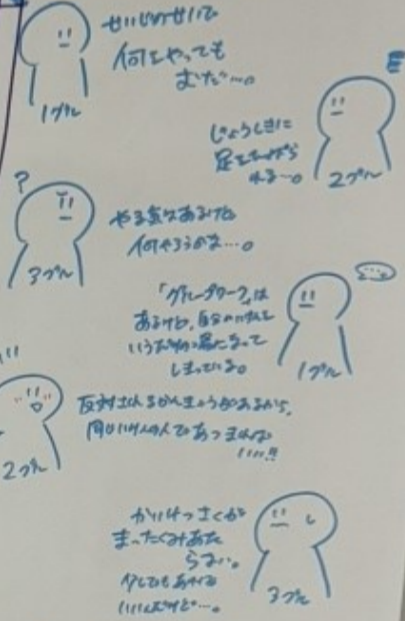 せいじのせいで
何をやっても
むだ…。
1グル
E
じょうしきに
足をひっぱら
れる…。
2グル
?
やる気はあるけど
何やろうかな…。
3グル
「グループワーク」は
あるけど、自分のいけんを
いうだけの場になって
しまっている。
1グル
!!!
反対されるかんきょうがあるから、
同じいけんの人であつまれば
いい!!
2グル
かいけつさくが
まったくみあた
らない。
少しでもあれば
いいんだけど…。
3グル